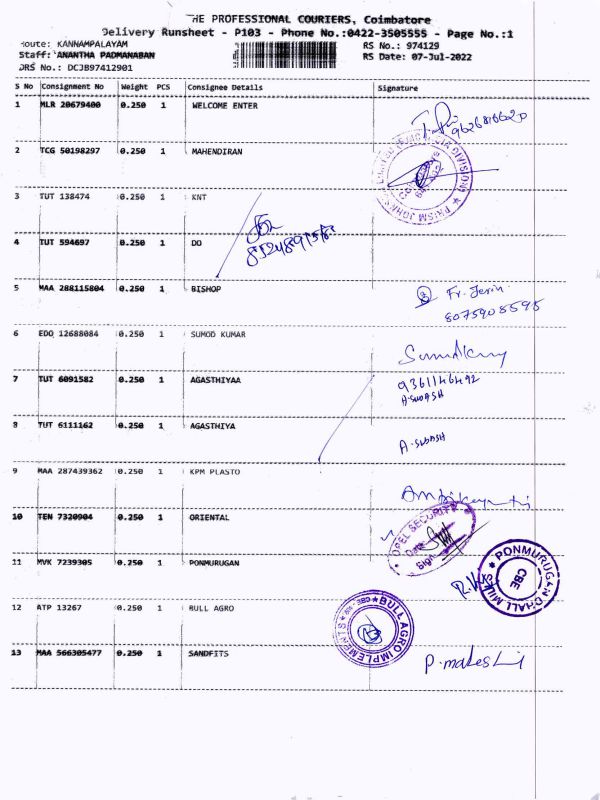 THE PROFESSIONAL COURIERS, Coimbatore
Delivery Runsheet - P103 - Phone No.:0422-3505555 - Page No.:1
Route: KANNAMPALAYAM RS No.: 974129
Staff: ANANTHA PADMANABAN RS Date: 07-Jul-2022
DRS No.: DCJB97412901
S No Consignment No Weight PCS Consignee Details Signature
1 MLR 20679400 0.250 1 WELCOME ENTER
2 TCG 50198297 0.250 1 MAHENDIRAN
3 TUT 138474 0.250 1 KNT
4 TUT 594697 0.250 1 DO
5 MAA 288115804 0.250 1 BISHOP Fr. Jerin
8075908595
6 EDO 12688084 0.250 1 SUMOD KUMAR
7 TUT 6091582 0.250 1 AGASTHIYAA 9361146492
A.SUBASH
8 TUT 6111162 0.250 1 AGASTHIYA A.SUBASH
9 MAA 287439362 0.250 1 KPM PLASTO
10 TEN 7320904 0.250 1 ORIENTAL OPEL SECURITY
Date
Sign
11 MVK 7239305 0.250 1 PONMURUGAN PONMURUGAN DHALL MILL
CBE
12 ATP 13267 0.250 1 BULL AGRO BULL AGRO IMPLEMENTS
13 MAA 566305477 0.250 1 SANDFITS